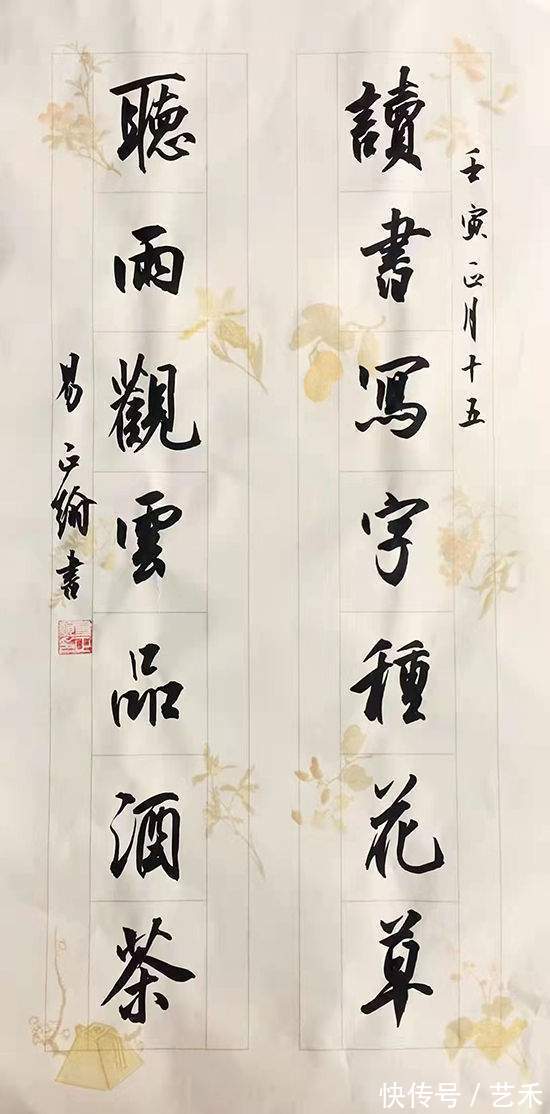 壬寅正月十五
讀書寫字種花草
聽雨觀雲品酒茶
易正綸書
快传号/艺禾